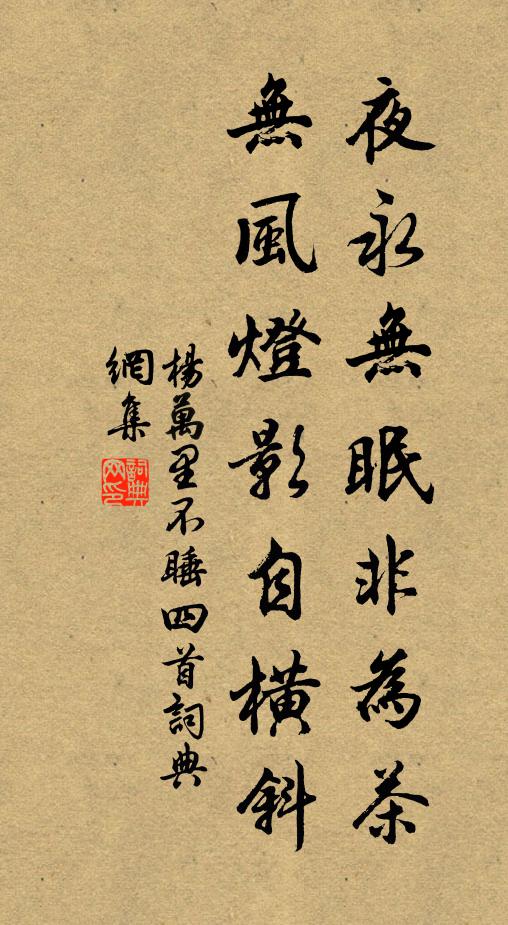 夜永無眠非為茶
無風燈影自橫斜
楊萬里不睡四首詞典
網集
詞典
网印